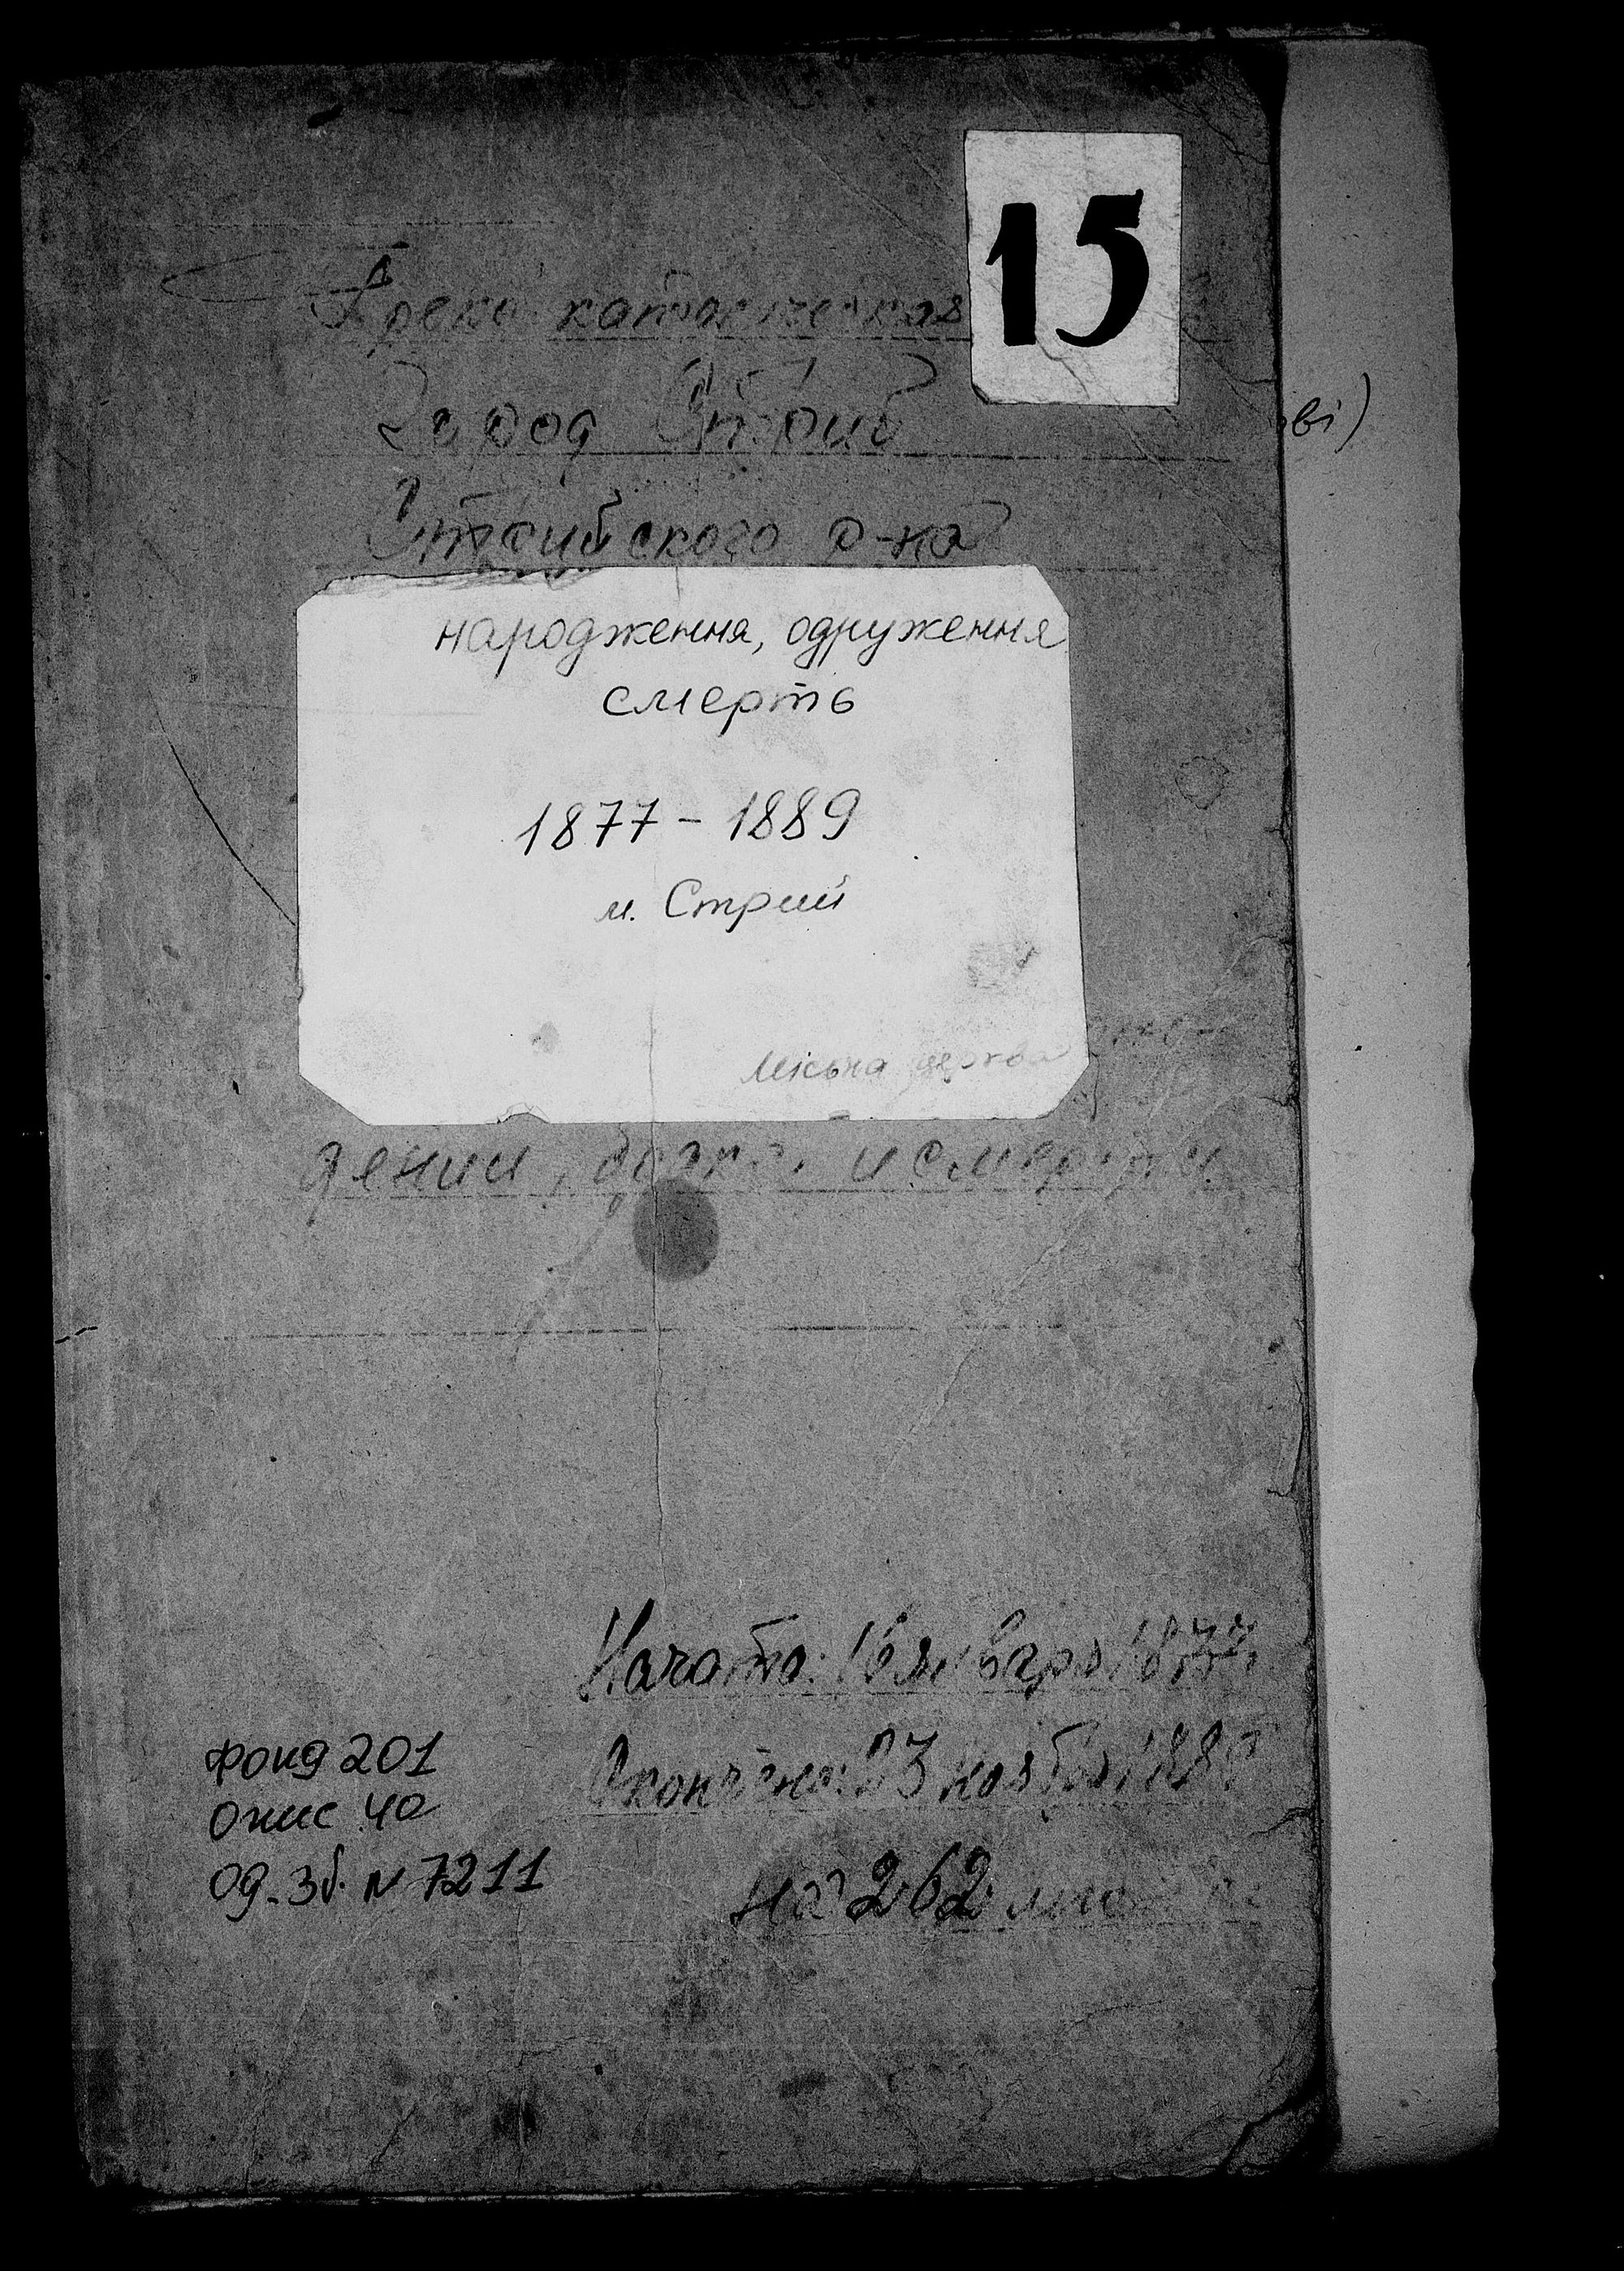 15
Греко католическая
город Стрий
іві)
Стрийского р-на
народження, одруження
смерть
1877 - 1889
м. Стрий
Міська церква
дении, браке и смерти
Начато: 16 января 1877
Окончено: 23 ноября 188
фонд 201
опис 4а
од. зб. N 7211
на 262